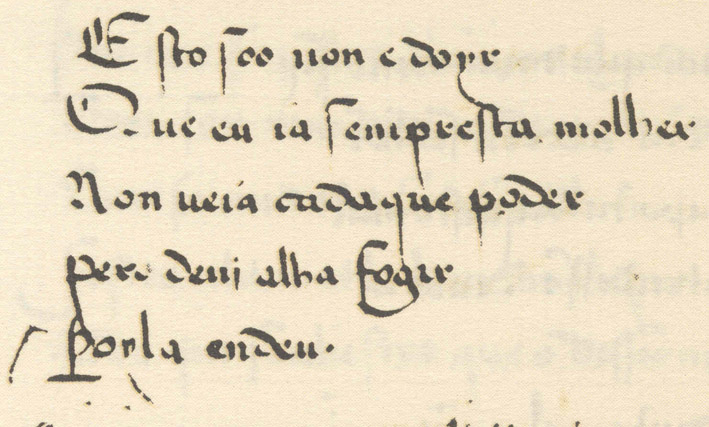 E sto seo non e doyr
Que eu ia sempresta molher
Non ueia cadaque poder
Pero deuj alha fogir
Porla endeu.